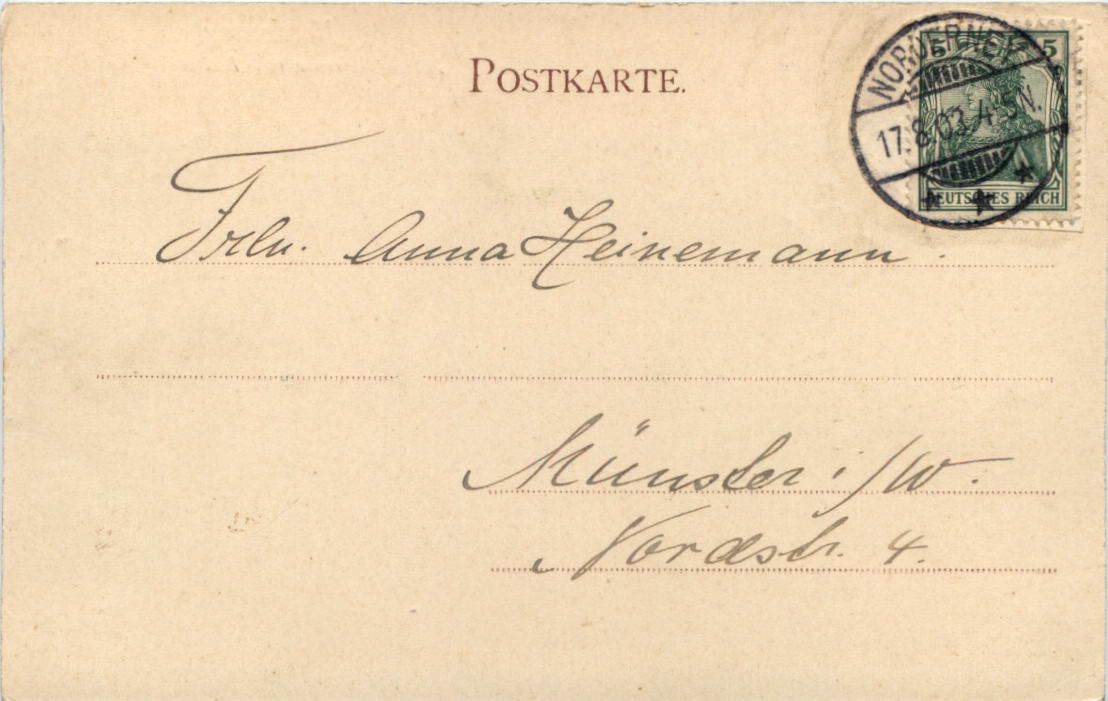 POSTKARTE.
NORDERNEY
17.8.03.4-5N.
5
DEUTSCHES REICH
Frln. Anna Heinemann.
Münster i/W.
Nordstr. 4.